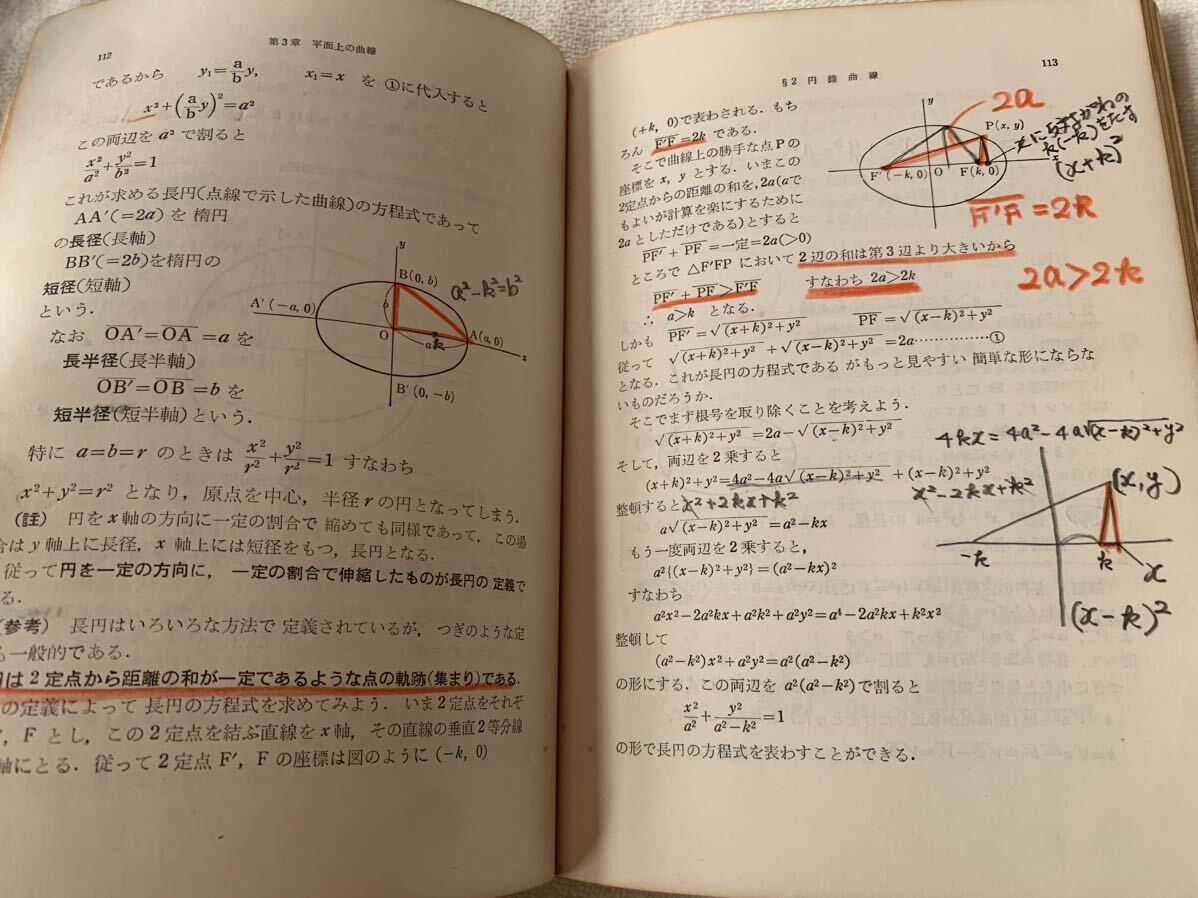 112
第3章 平面上の曲線
であるから y₁=a/b y, x₁=x を ①に代入すると
x²+(a/b y)²=a²
この両辺を a² で割ると
x²/a²+y²/b²=1
これが求める長円(点線で示した曲線)の方程式であって
AA′(=2a)を 楕円
の長径(長軸)
BB′(=2b)を楕円の
短径(短軸)
という.
なお OA′=OA=a を
長半径(長半軸)
OB′=OB=b を
短半径(短半軸)という.
y
B(0, b)
a²-k²=b²
A′(-a, 0)
b
O
a
k
A(a, 0)
x
B′(0, -b)
特に a=b=r のときは x²/r²+y²/r²=1 すなわち
x²+y²=r² となり, 原点を中心, 半径 r の円となってしまう.
(註) 円を x軸の方向に一定の割合で 縮めても同様であって, この場
合は y 軸上に長径, x 軸上には短径をもつ, 長円となる.
従って円を一定の方向に, 一定の割合で伸縮したものが長円の 定義で
る.
(参考) 長円はいろいろな方法で 定義されているが, つぎのような定
も一般的である.
円は 2 定点から距離の和が一定であるような点の軌跡(集まり)である.
の定義によって 長円の方程式を求めてみよう. いま2定点をそれぞ
′, F とし, この2定点を結ぶ直線を x軸, その直線の垂直2等分線
軸にとる. 従って2定点 F′, F の座標は図のように (-k, 0)
§2 円錐曲線
113
(+k, 0)で表わされる. もち
ろん F′F=2k である.
そこで曲線上の勝手な点Pの
座標を x, y とする. いまこの
2定点からの距離の和を, 2a(aで
もよいが計算を楽にするために
2aとしただけである)とすると
PF′+PF=一定=2a(>0)
y
2a
P(x, y)
F′(-k, 0)
O
F(k, 0)
x
k(-k)をたす
(x+k)²
F′F=2k
ところで △F′FP において 2辺の和は第3辺より大きいから
PF′+PF>F′F すなわち 2a>2k
2a>2k
∴ a>k となる.
しかも PF′=√(x+k)²+y² PF=√(x-k)²+y²
従って √(x+k)²+y²+√(x-k)²+y²=2a……………①
となる. これが長円の方程式である がもっと見やすい 簡単な形にならな
いものだろうか.
そこでまず根号を取り除くことを考えよう.
√(x+k)²+y²=2a-√(x-k)²+y²
4kx=4a²-4a√(x-k)²+y²
そして, 両辺を2乗すると
(x+k)²+y²=4a²-4a√(x-k)²+y²+(x-k)²+y²
整頓すると
x²+2kx+k²
x²-2kx+k²
a√(x-k)²+y²=a²-kx
もう一度両辺を2乗すると,
a²{(x-k)²+y²}=(a²-kx)²
すなわち
a²x²-2a²kx+a²k²+a²y²=a⁴-2a²kx+k²x²
(x,y)
-k
k
x
(x-k)²
整頓して
(a²-k²)x²+a²y²=a²(a²-k²)
の形にする. この両辺を a²(a²-k²)で割ると
x²/a²+y²/(a²-k²)=1
の形で長円の方程式を表わすことができる.